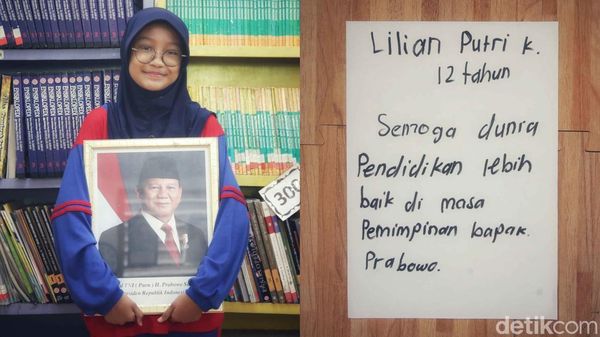 ENSIKLOPEDI
300
H. Prabowo
Presiden Republik Indonesia
Lilian Putri k.
12 tahun
Semoga dunia
Pendidikan lebih
baik di masa
Pemimpinan bapak.
Prabowo.
detikcom